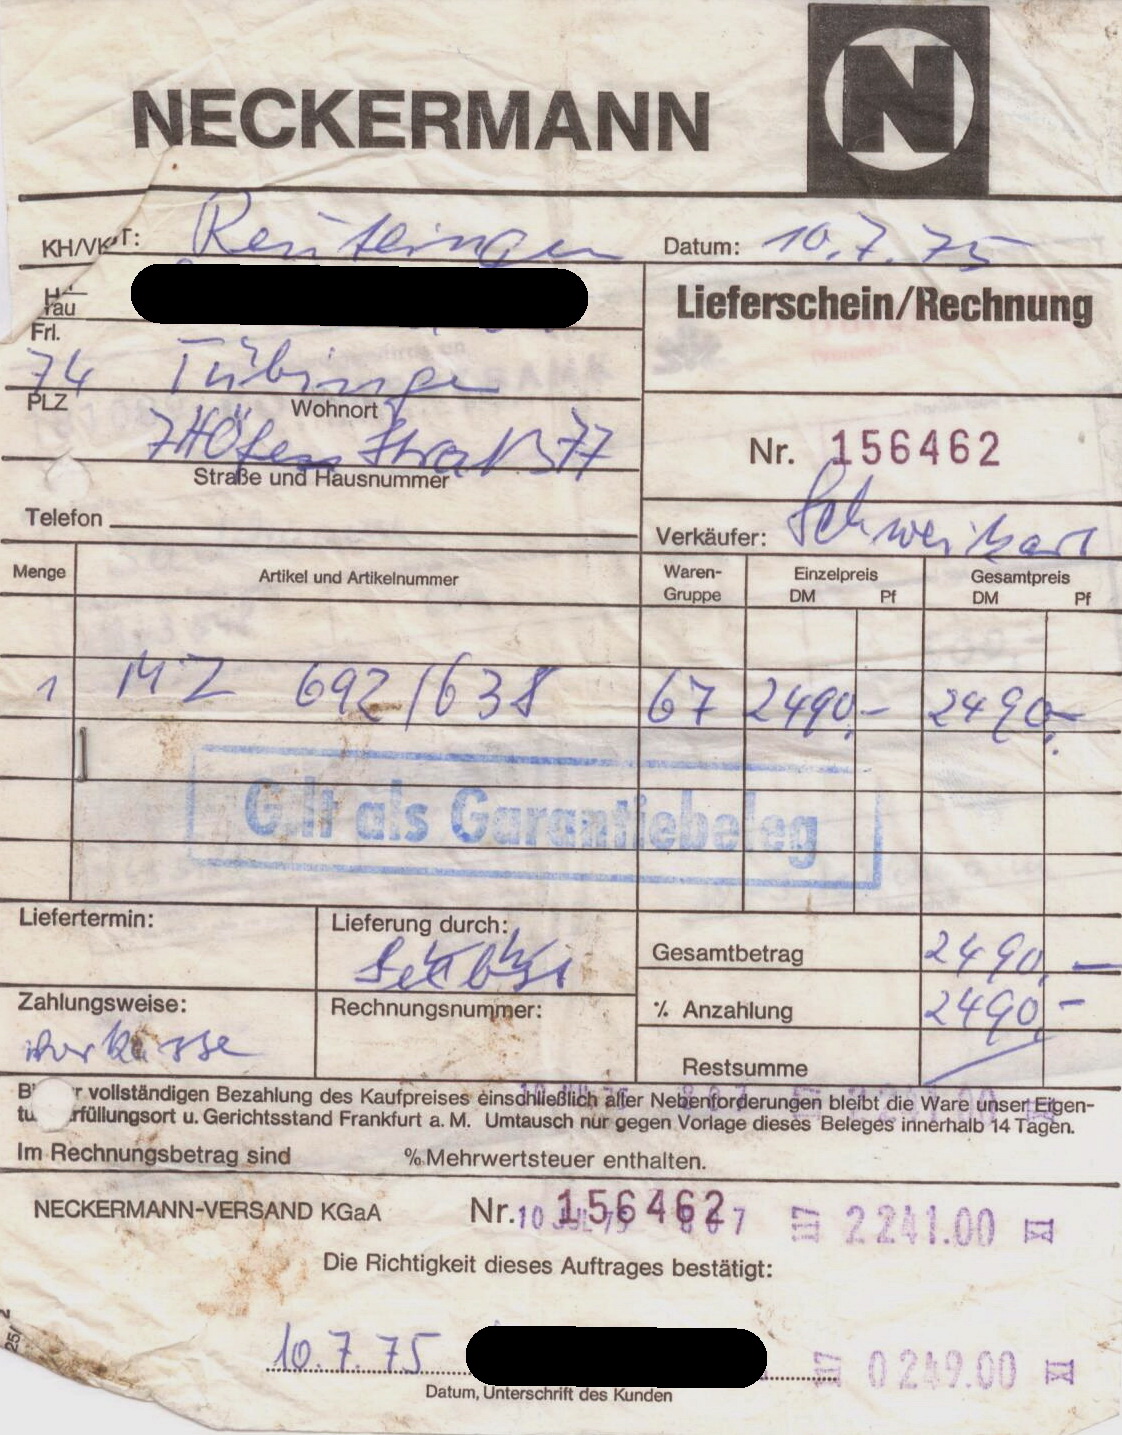 NECKERMANN
N
KH/VK
T: Reutlingen
Datum: 10.7.75
rau
Frl.
Lieferschein/Rechnung
74 Tübingen
PLZ Wohnort
Straße und Hausnummer
Nr. 156462
Telefon
Verkäufer: Schweikart
Menge Artikel und Artikelnummer Waren-Gruppe Einzelpreis DM Pf Gesamtpreis DM Pf
1 MZ 692/638 67 2490,- 2490,-
Gilt als Garantiebeleg
Liefertermin: Lieferung durch:
Gesamtbetrag 2490,-
Zahlungsweise: Rechnungsnummer:
% Anzahlung 2490,-
Restsumme
vollständigen Bezahlung des Kaufpreises einschließlich aller Nebenforderungen bleibt die Ware unser Eigen-
tu rfüllungsort u. Gerichtsstand Frankfurt a. M. Umtausch nur gegen Vorlage dieses Beleges innerhalb 14 Tagen.
Im Rechnungsbetrag sind % Mehrwertsteuer enthalten.
NECKERMANN-VERSAND KGaA Nr. 156462
2241.00
Die Richtigkeit dieses Auftrages bestätigt:
10.7.75
0249.00
Datum, Unterschrift des Kunden